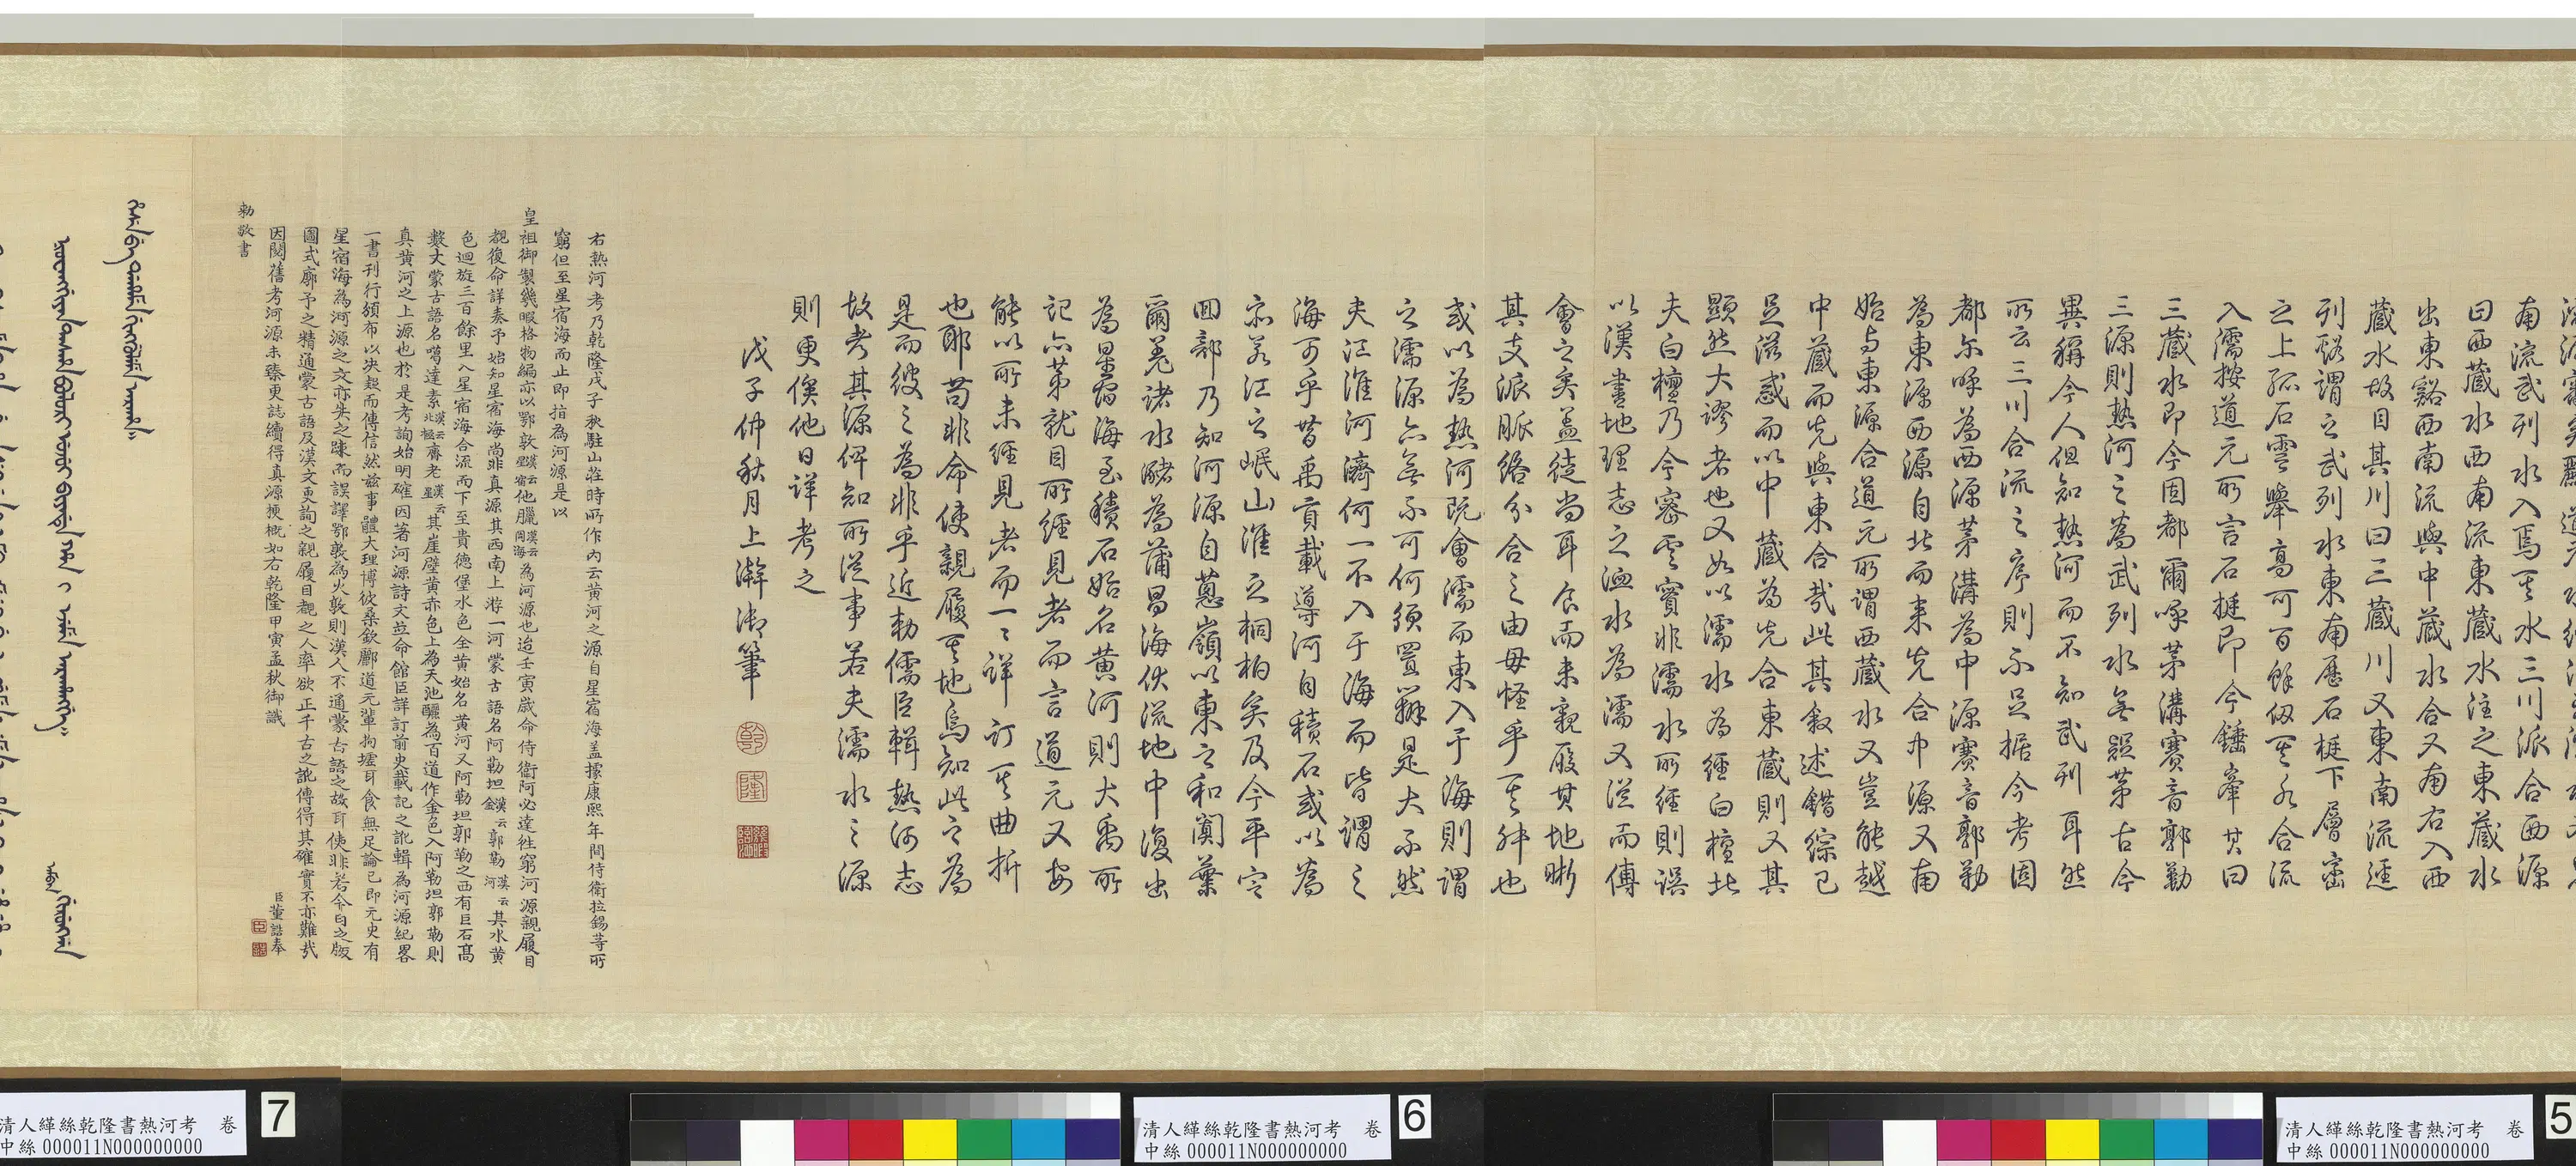 南流武列水入焉其水三川派合西源
曰西藏水西南流東藏水注之東藏水
出東谿西南流與中藏水合又南右入西
藏水故目其川曰三藏川又東南流逕
列谿謂之武列水東南歷石梃下層巒
之上孤石雲舉高可百餘仞其水合流
入濡按道元所言石挺即今錘峯其曰
三藏水即今固都爾呼茅溝賽音郭勒
三源則熱河之為武列水無疑第古今
異稱今人但知熱河而不知武列耳然
所云三川合流之序則不足據今考固
都尔呼為西源茅溝為中源賽音郭勒
為東源西源自北而来先合中源又南
始与東源合道元所謂西藏水又豈能越
中藏而先與東合哉此其敘述錯綜已
足滋惑而以中藏為先合東藏則又其
顯然大謬者也又如以濡水為經白檀北
夫白檀乃今密雲實非濡水所經則誤
以漢書地理志之洫水為濡又從而傅
會之矣蓋徒尚耳食而未親歷其地晰
其支派脈絡分合之由毋怪乎其舛也
或以為熱河既會濡而東入于海則謂
之濡源亦無不可何須置辯是大不然
夫江淮河濟何一不入于海而皆謂之
海可乎昔禹貢載導河自積石或以為
宗若江之岷山淮之桐柏矣及今平定
回部乃知河源自蔥嶺以東之和闐葉
爾羌諸水瀦為蒲昌海伏流地中復出
為星宿海至積石始名黃河則大禹所
記亦第就目所經見者而言道元又安
能以所未經見者而一一詳訂其曲折
也耶苟非命使親履其地烏知此之為
是而彼之為非乎近勅儒臣輯熱河志
故考其源俾知所從事若夫濡水之源
則更俟他日詳考之
戊子仲秋月上澣御筆
乾
隆
右熱河考乃乾隆戊子秋駐山莊時所作內云黃河之源自星宿海蓋據康熙年間侍衛拉錫等所
窮但至星宿海而止即指為河源是以
皇祖御製幾暇格物編亦以鄂敦漢云星宿他臘漢云同海為河源也迨壬寅歲命侍衛阿必達往窮河源親履目
覩復命詳奏予始知星宿海尚非真源其西南上游一河蒙古語名阿勒坦漢云金郭勒漢云河其水黃
色迴旋三百餘里入星宿海合流而下至貴德堡水色全黃始名黃河又阿勒坦郭勒之西有巨石高
數丈蒙古語名噶達素漢云北極齊老漢云石其崖壁黃赤色上為天池釃為百道作金色入阿勒坦郭勒則
真黃河之上源也於是考詢始明確因著河源詩文竝命館臣詳訂前史載記之訛輯為河源紀畧
一書刊行頒布以決疑而傳信然茲事體大理博彼桑欽酈道元輩拘墟耳食無足論已即元史有
星宿海為河源之文亦失之疎而誤譯鄂敦為火敦則漢人不通蒙古語之故耳使非若今日之版
圖式廓予之精通蒙古語及漢文更詢之親履目覩之人率欲正千古之訛傳得其確實不亦難哉
因閱舊考河源未臻更誌續得真源梗概如右乾隆甲寅孟秋御識
臣董誥奉
勅敬書
清人緙絲乾隆書熱河考 卷
中絲 000011N000000000
7
清人緙絲乾隆書熱河考 卷
中絲 000011N000000000
6
清人緙絲乾隆書熱河考 卷
中絲 000011N000000000
5